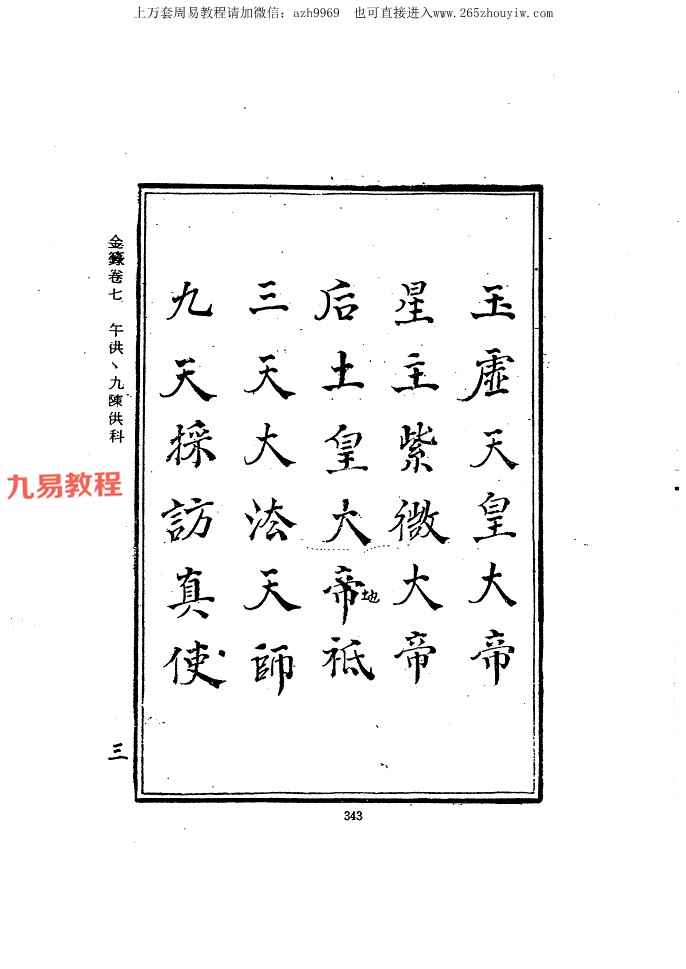 上万套周易教程请加微信：azh9969　也可直接进入www.265zhouyiw.com
玉虛天皇大帝
星主紫微大帝
后土皇大帝地祇
三天大法天師
九天採訪真使
金籙卷七　午供、九陳供科
三
九易教程
343